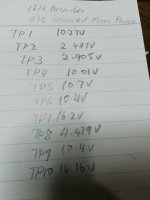 12th December
USB connected Music Pause
TP1 10.27V
TP2 2.497V
TP3 2.905V
TP4 10.01V
TP5 10.7V
TP6 10.4V
TP7 16.2V
TP8 4.479V
TP9 10.4V
TP10 16.16V